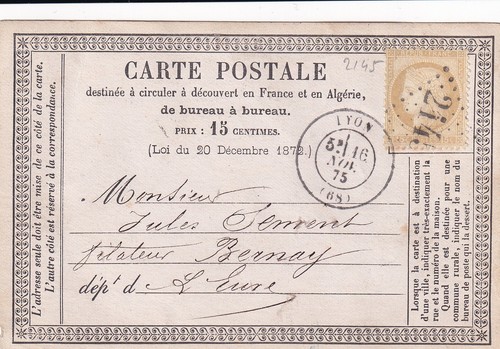 2145
CARTE POSTALE
destinée à circuler à découvert en France et en Algérie,
de bureau à bureau.
PRIX : 15 CENTIMES.
(Loi du 20 Décembre 1872.)
LYON
5E 16
NOV.
75
(68)
2145
Monsieur
Jules
filateur Bernay
dépt de L'Eure
L'adresse seule doit être mise de ce côté de la carte.
L'autre côté est réservé à la correspondance.
Lorsque la carte est à destination
d'une ville, indiquer très-exactement la
rue et le numéro de la maison.
Quand elle est destinée pour une
commune rurale, indiquer le nom du
bureau de poste qui la dessert.